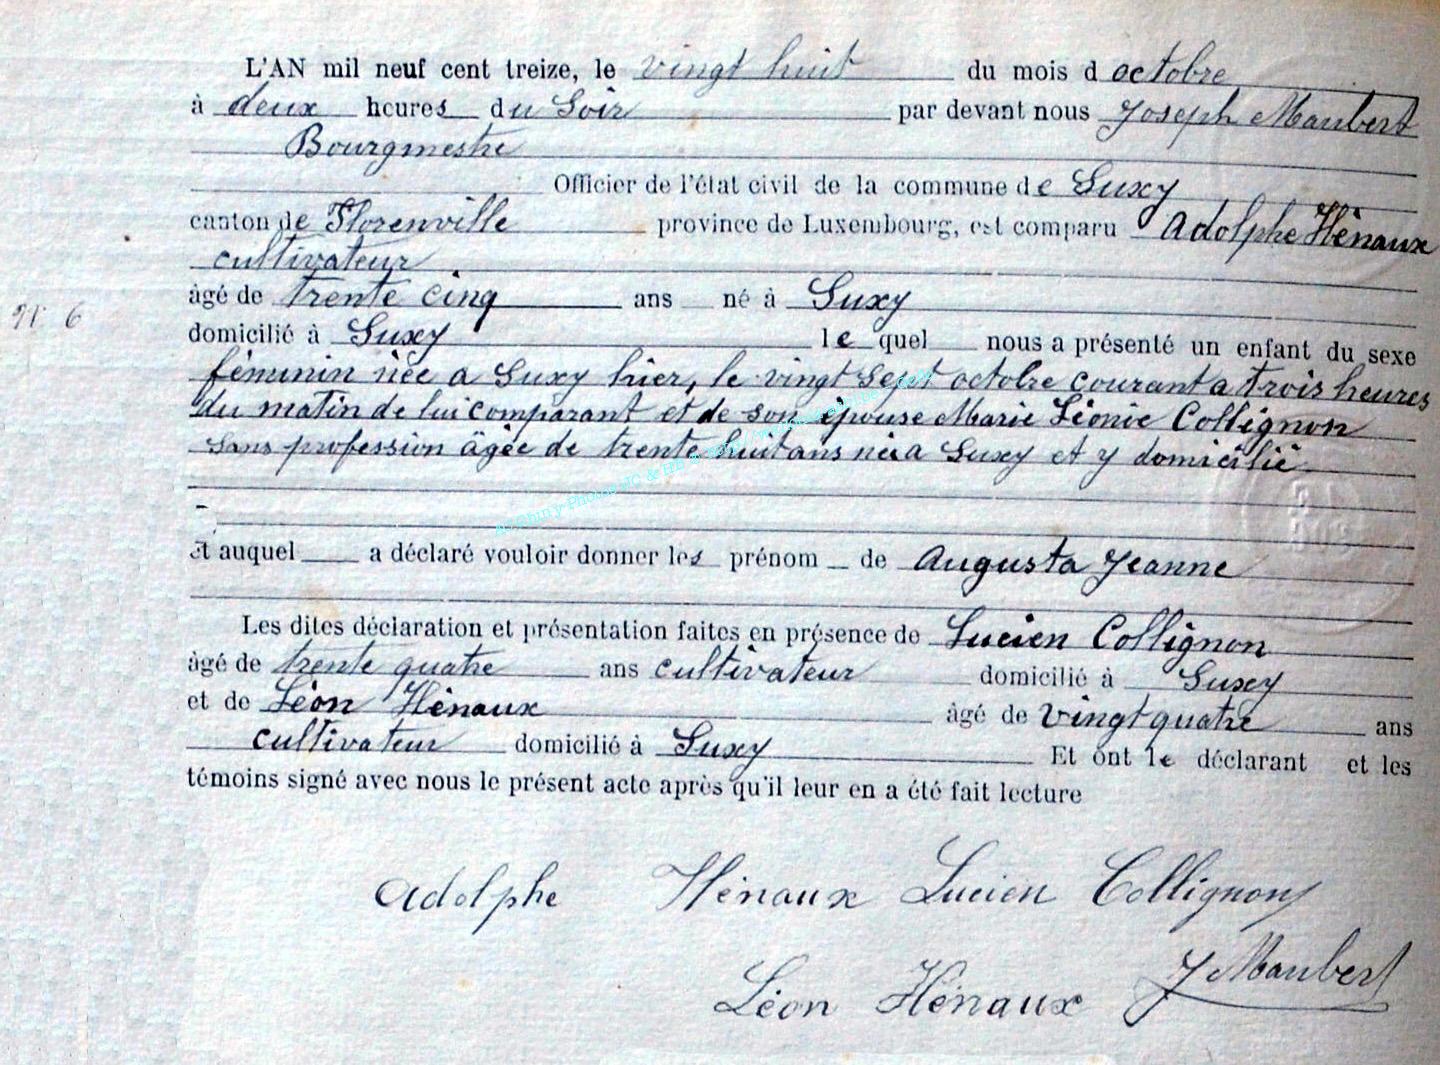 L'AN mil neuf cent treize, le vingt huit du mois d octobre
à deux heures du Soir par devant nous Joseph Maubert
Bourgmestre
Officier de l'état civil de la commune de Suxy
canton de Florenville province de Luxembourg, est comparu Adolphe Hénaux
cultivateur
âgé de trente cinq ans né à Suxy
N° 6
domicilié à Suxy le quel nous a présenté un enfant du sexe
féminin née a Suxy hier, le vingt Sept octobre courant a trois heures
du matin de lui comparant et de son épouse Marie Léonie Collignon
Sans profession âgée de trente huit ans née a Suxy et y domicilié
Et auquel a déclaré vouloir donner les prénom de Augusta Jeanne
Les dites déclaration et présentation faites en présence de Lucien Collignon
âgé de trente quatre ans cultivateur domicilié à Suxy
et de Léon Hénaux âgé de vingt quatre ans
cultivateur domicilié à Suxy Et ont le déclarant et les
témoins signé avec nous le présent acte après qu'il leur en a été fait lecture
Adolphe Hénaux Lucien Collignon
Léon Hénaux J Maubert